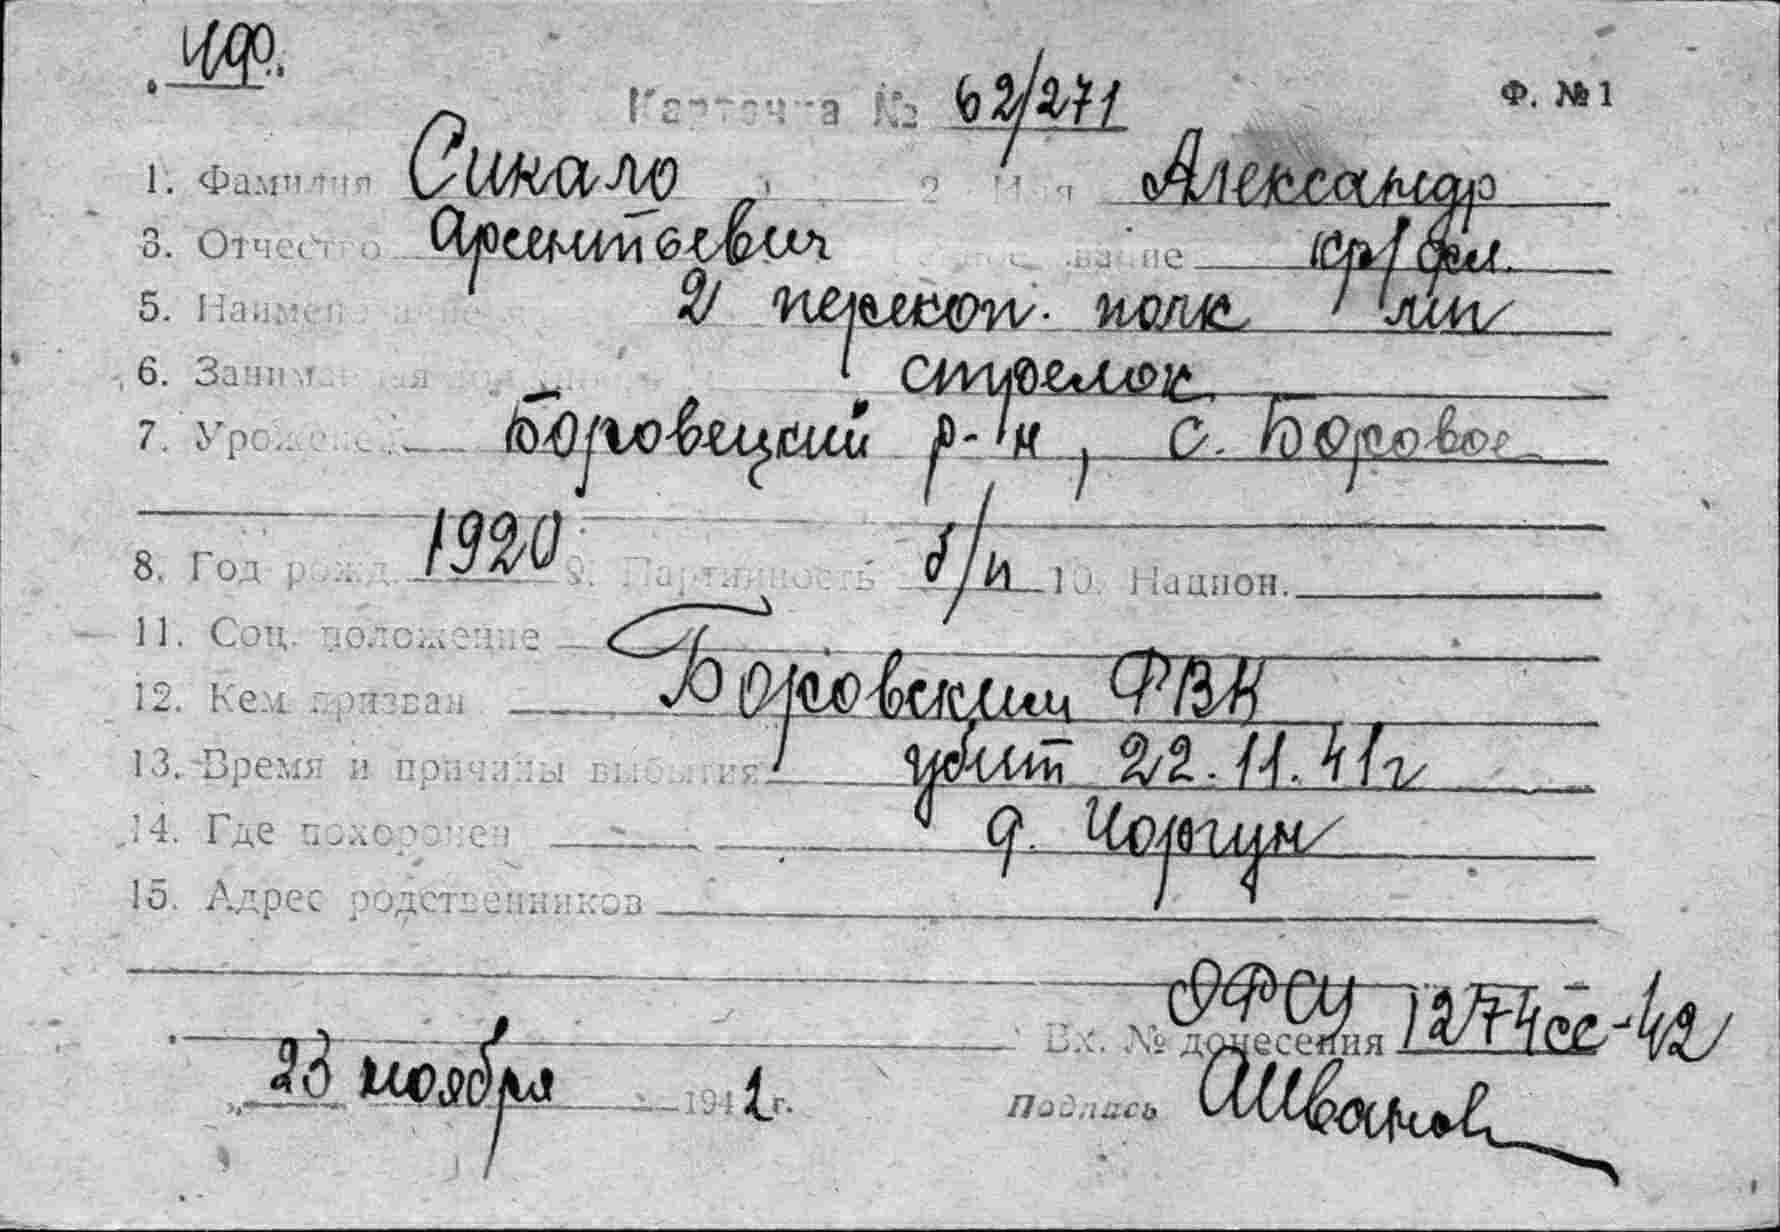 Карточка № 62/271 Ф. № 1
1. Фамилия Сикало 2. Имя Александр
3. Отчество Арсентьевич звание кр/фл.
5. Наименование 2 перекоп. полк мп
6. Занимаемая должность стрелок
7. Уроженец Боровецкий р-н, с. Боровое
8. Год рожд. 1920 9. Партийность б/п 10. Национ.
11. Соц. положение
12. Кем призван Боровским РВК
13. Время и причины выбытия убит 22.11.41г
14. Где похоронен д. Чоргун
15. Адрес родственников
Вх. № донесения 1274сс-42
„23 ноября 1942 г. Подпись АИванов